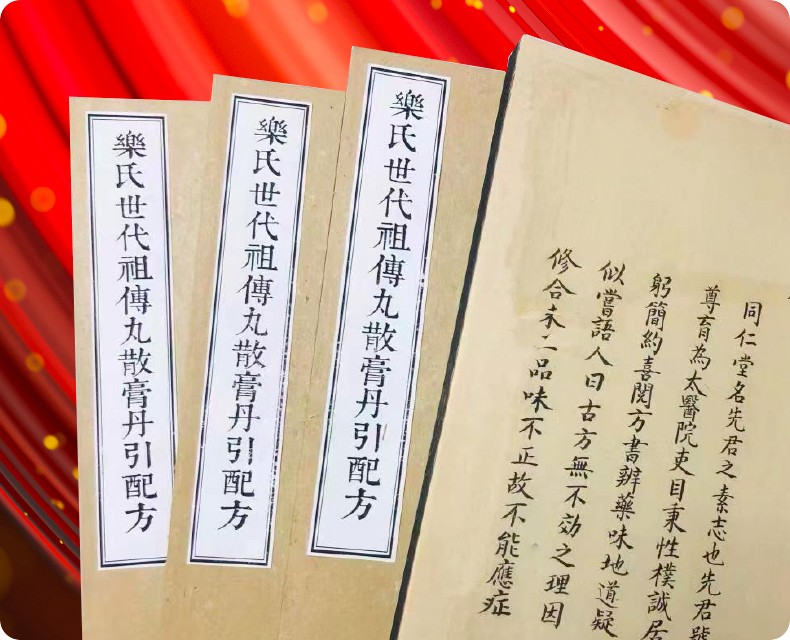 樂氏世代祖傳丸散膏丹引配方
樂氏世代祖傳丸散膏丹引配方
樂氏世代祖傳丸散膏丹引配方
同仁堂名先君之素志也先君號
尊育為太醫院吏目秉性樸誠居
躬簡約喜閱方書辨藥味地道疑
似嘗語人曰古方無不効之理因
修合未工品味不正故不能應症